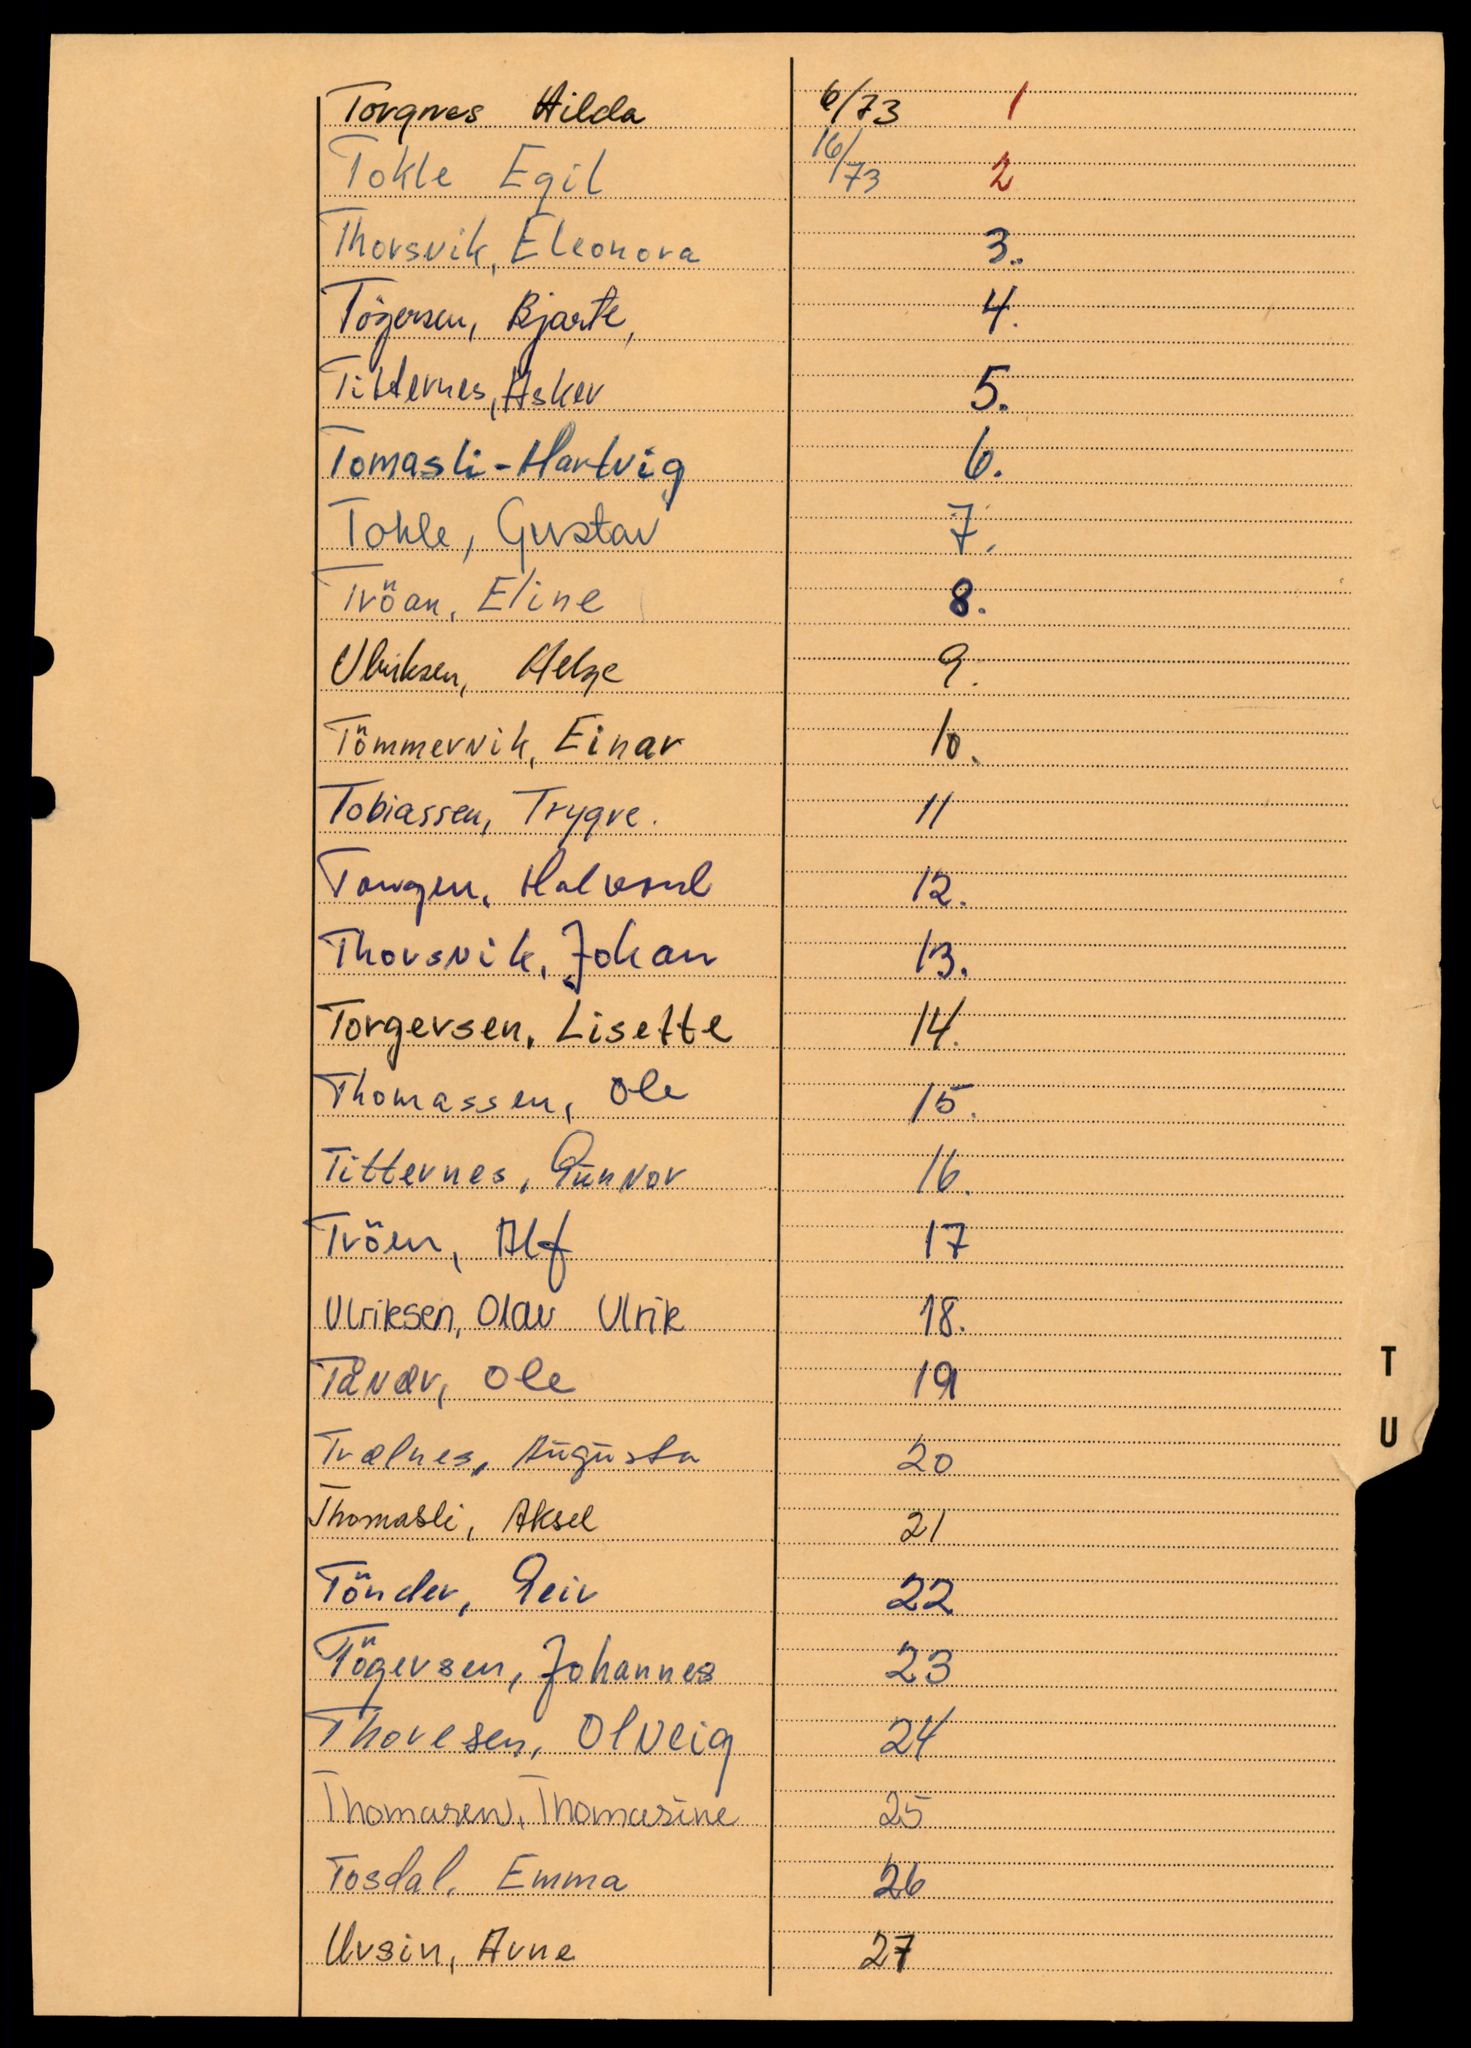 Torgnes Hilda 6/73 1
Tokle Egil 16/73 2
Thorsvik, Eleonora 3.
Tögersen, Bjarte, 4.
Titternes, Asker 5.
Tomasli-Hartvig 6.
Tokle, Gustav 7.
Tröan, Eline 8.
Ulriksen, Helge 9.
Tömmervik, Einar 10.
Tobiassen, Trygve. 11
Tangen, Halvard 12.
Thorsvik, Johan 13.
Torgersen, Lisette 14.
Thomassen, Ole 15.
Titternes, Gunvor 16.
Tröen, Alf 17
Ulriksen, Olav Ulrik 18.
Tåvær, Ole 19
T
Trælnes, Augusta 20
U
Thomasli, Aksel 21
Tönder, Geir 22
Tögersen, Johannes 23
Thoresen, Olveig 24
Thomasen, Thomasine 25
Tosdal, Emma 26
Ursin, Arne 27